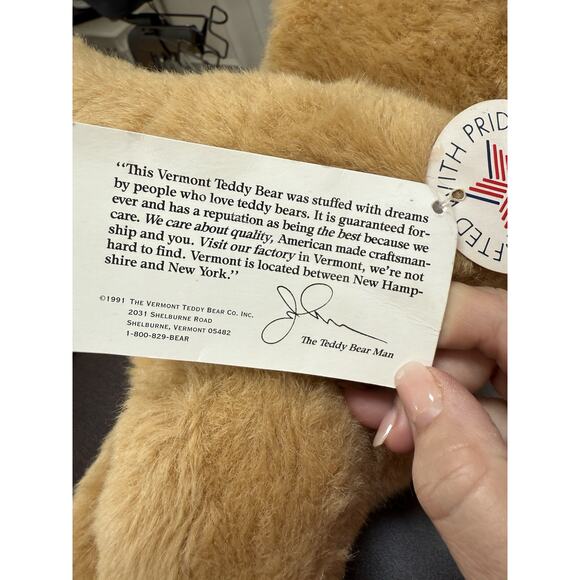 "This Vermont Teddy Bear was stuffed with dreams
by people who love teddy bears. It is guaranteed for-
ever and has a reputation as being the best because we
care. We care about quality, American made craftsman-
ship and you. Visit our factory in Vermont, we're not
hard to find. Vermont is located between New Hamp-
shire and New York."
©1991 THE VERMONT TEDDY BEAR CO. INC.
2031 SHELBURNE ROAD
SHELBURNE, VERMONT 05482
1-800-829-BEAR
The Teddy Bear Man
WITH PRIDE